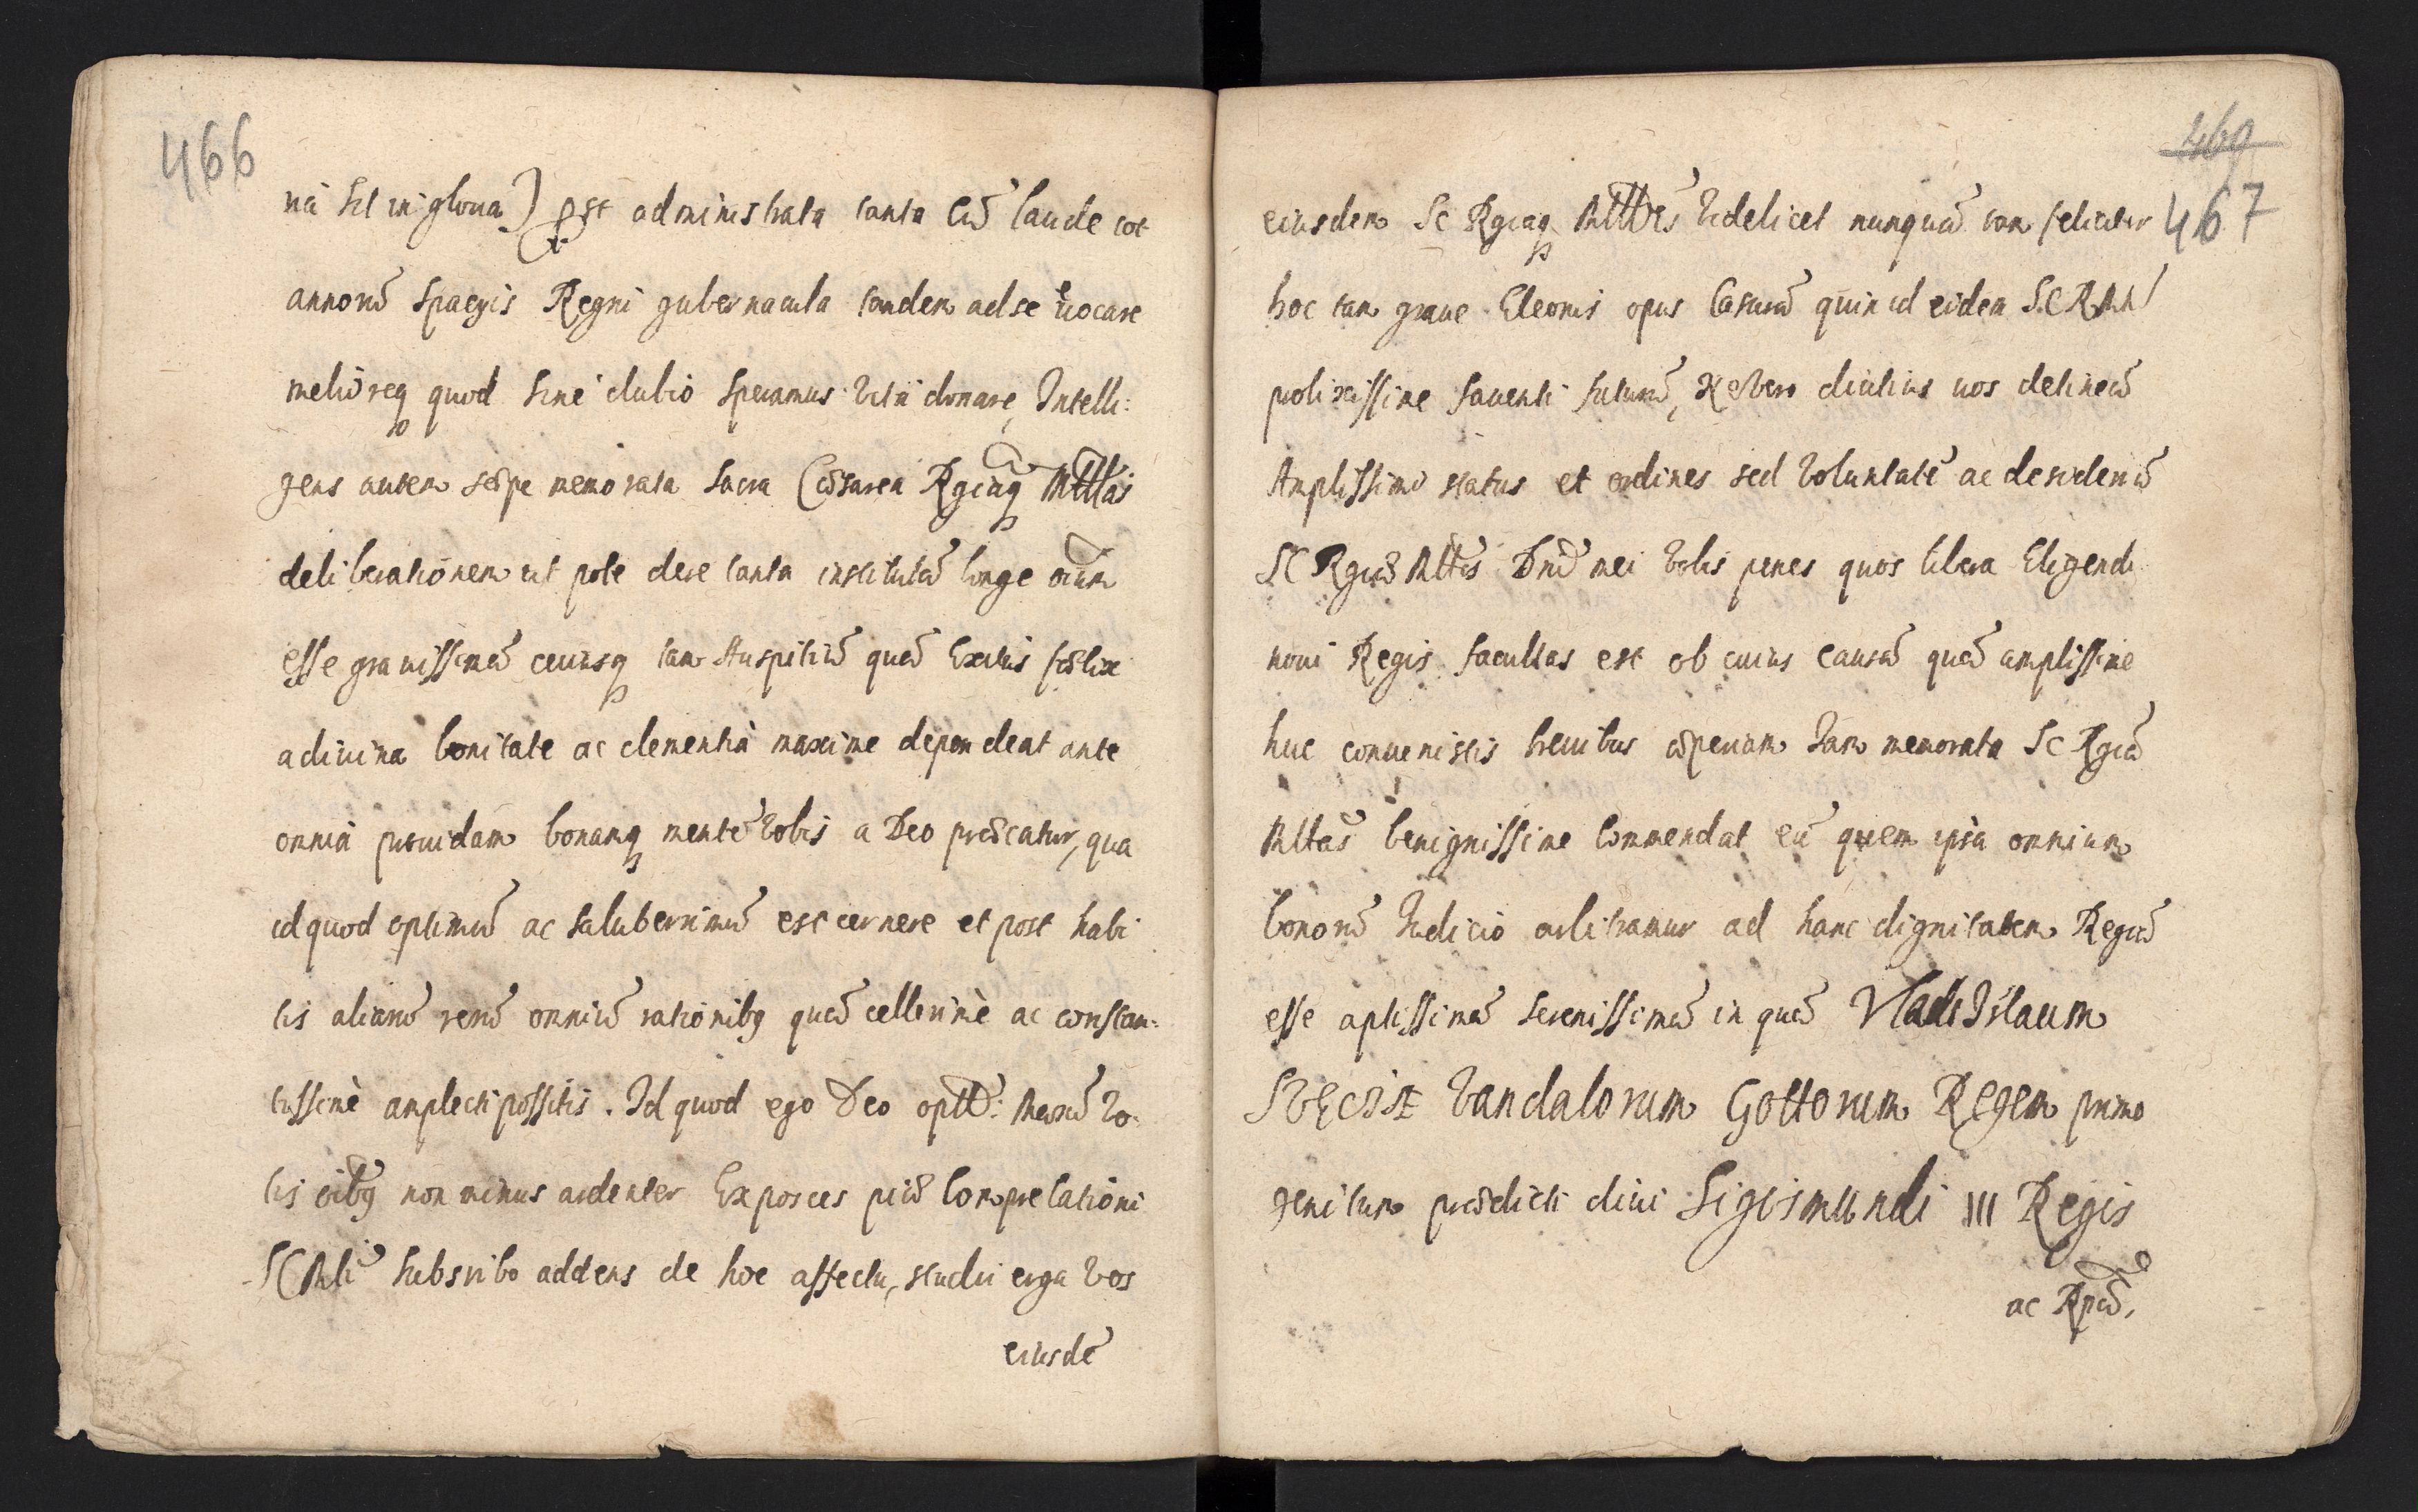 466
na sit in gloria) post administrata tanta cū laude tot
annorū spacijs Regni gubernacula tandem ad se euocare
melioreq quod sine dubio speramus vita donare, Intelli:
gens autem sæpe memorata Sacra Cæsarea Rgiaq Mttas
deliberationem ut pote de re tanta institutā longe oium
esse grauissimā cuiusq tam Auspitiū quā Exitus fœlix
a diuina bonitate ac clementia maxime dependeat ante
omnia prouidam bonamq mentē vobis a Deo præcatur, qua
id quod optimū ac saluberrimū est cernere et post habi
tis aliarū rerū omniū rationibq quā cellerimè ac constan:
tissimè amplecti possitis. Id quod ego Deo optt: Maxō vo
bis oibq non minus ardenter Exposces piæ comprecationi
SC Mti subsribo addens de hoc affectu, studii erga vos
eiusdē
469
467
eiusdem Sc Rgiaq Mttis videlicet nunquā tam feliciter
hoc tam graue Eleonis opus casurū quin id eidem S.C R Mti
prolixissime fauenti futurū, Ne vero diutius uos detineā
Amplissimi status et ordines sed voluntatē ac desideriū
SC Rgiæ Mttis Dnī mei vobis penes quos libera Eligendi
noui Regis facultas est ob cuius causā quā amplissime
huc conuenistis breuibus aperiam Iam memorata Sc Rgiā
Mttas benignissime commendat eū quem ipsa omnium
bonorū Iudicio arbitramur ad hanc dignitatem Regiā
esse aptissimū serenissimū in quā Vladislaum
SVECIÆ Vandalorum Gottorum Regem primo
genitum prædicti diui Sigismundi III Regis
ac Rpcæ,